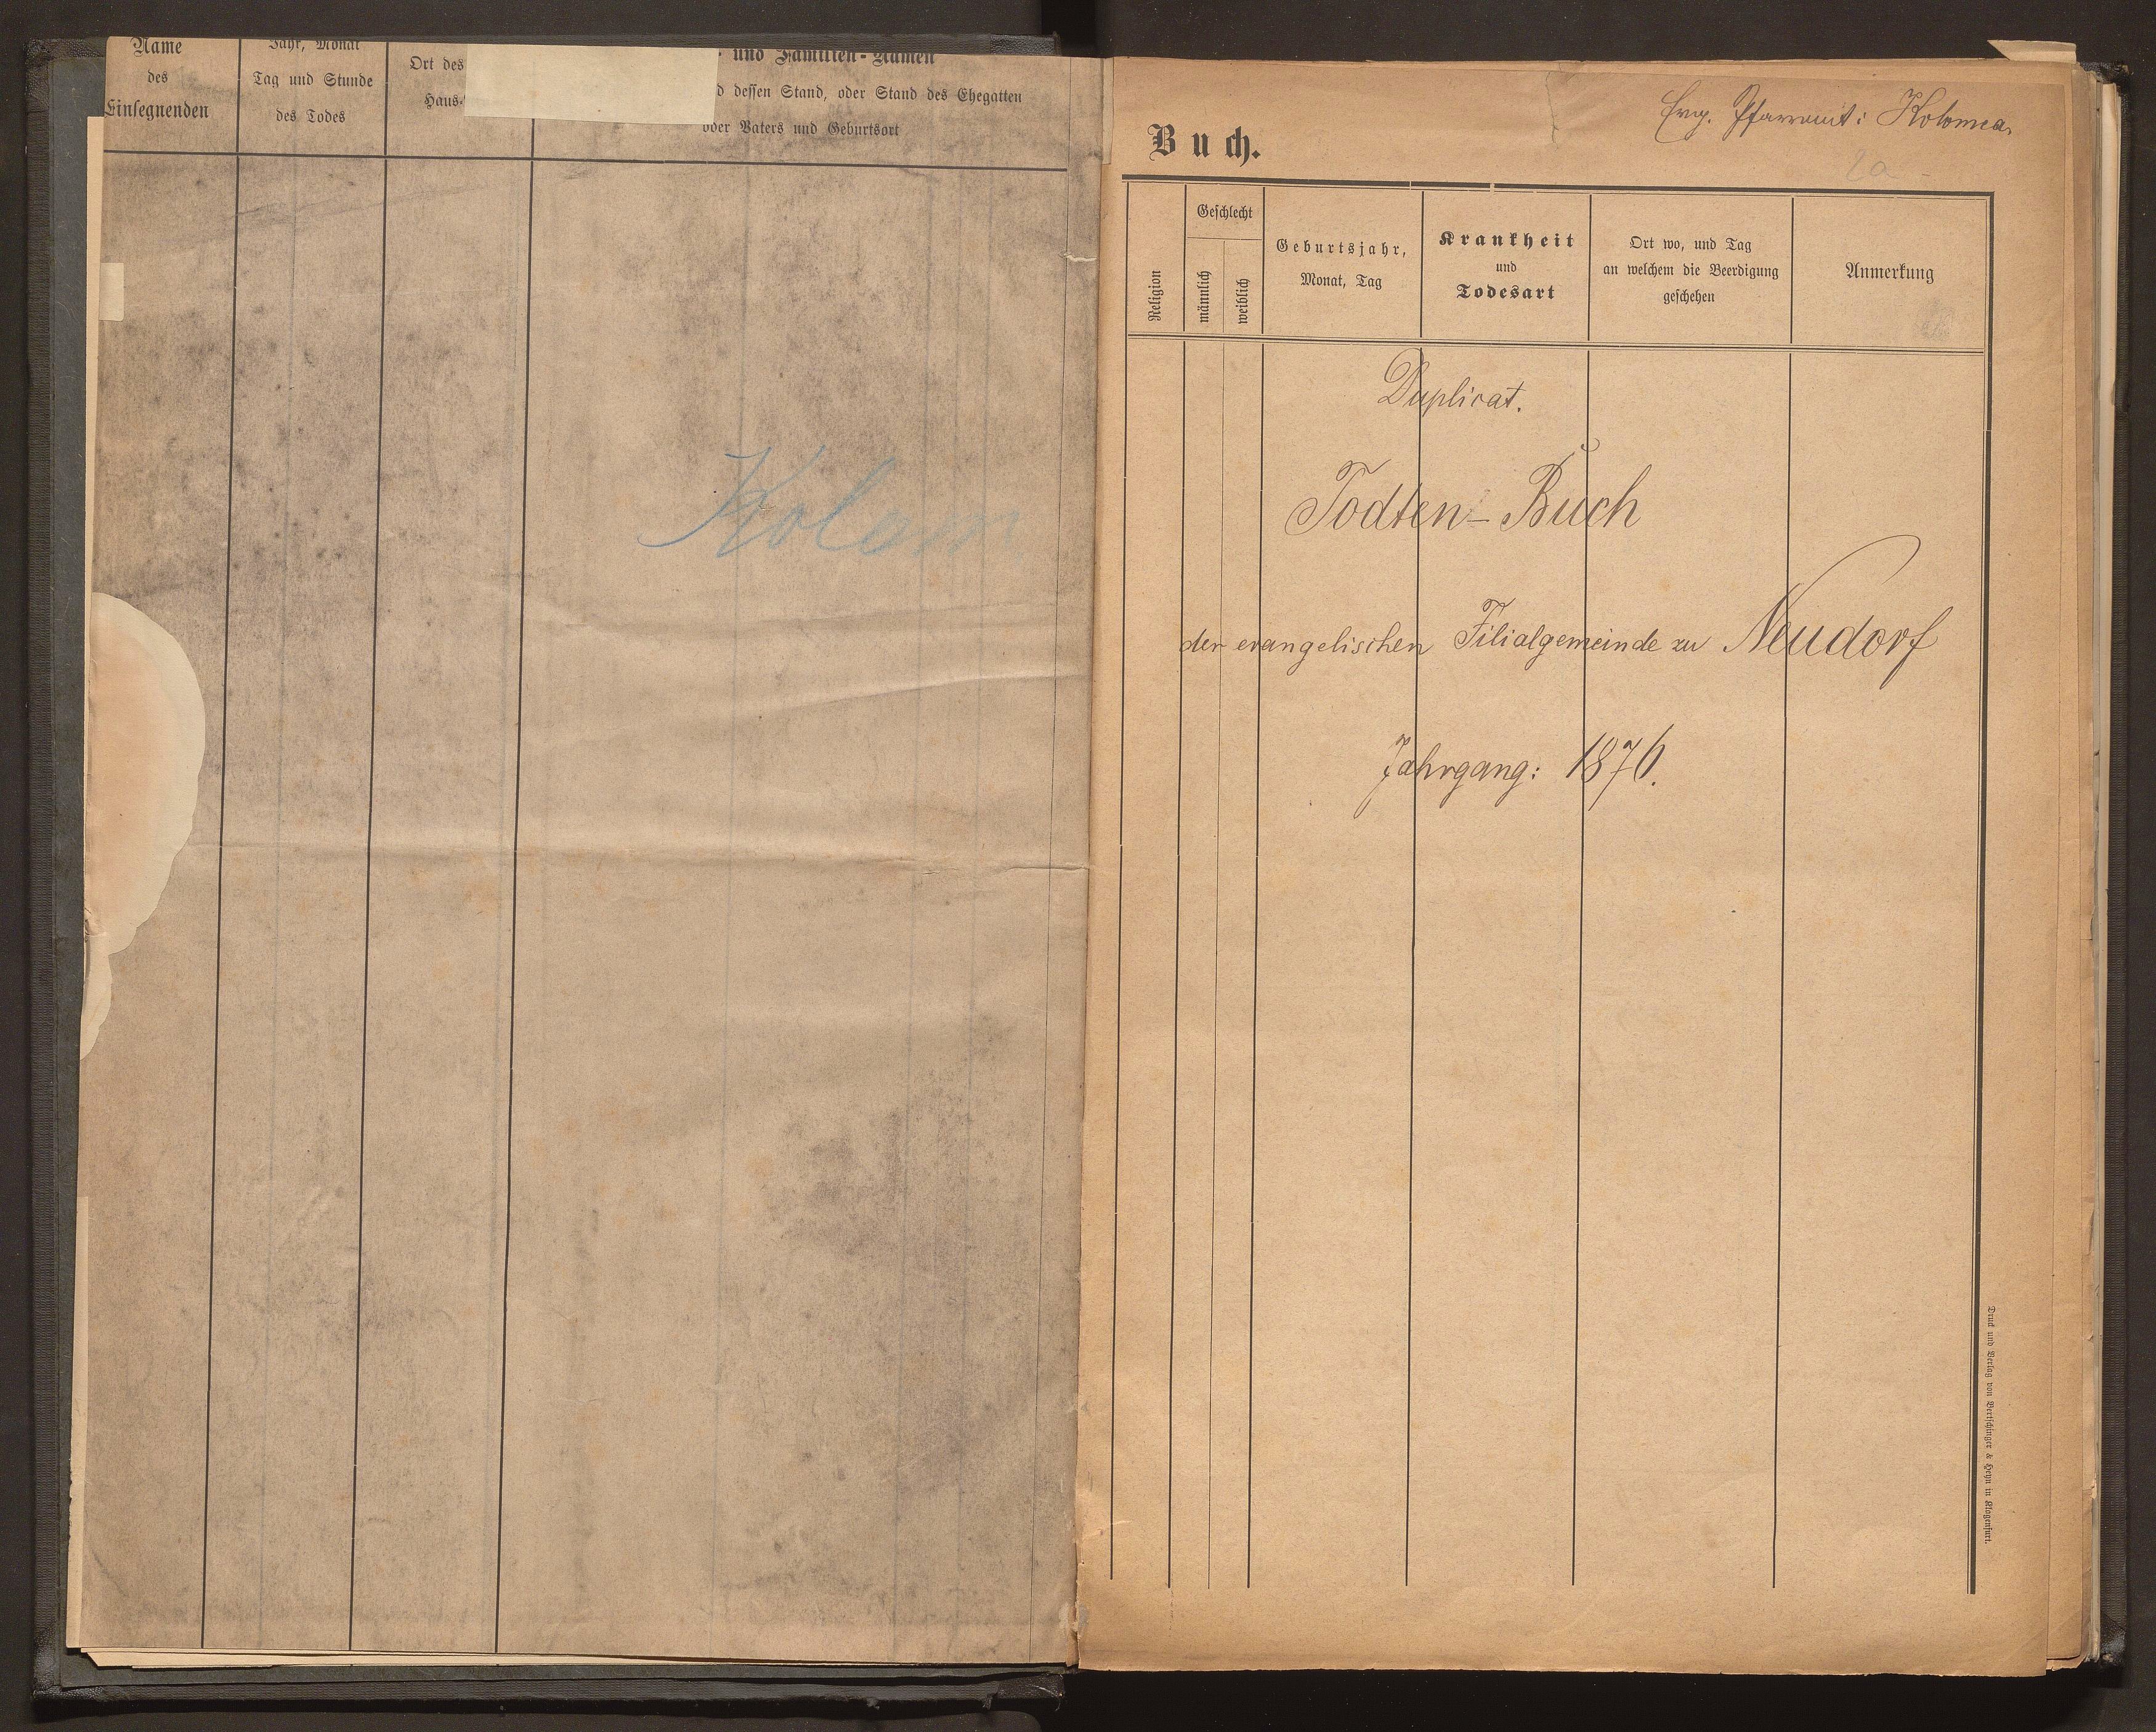 Name
des
Einsegnenden
Jahr, Monat
Tag und Stunde
des Todes
Ort des
Haus-
und Familien-Namen
d dessen Stand, oder Stand des Ehegatten
oder Vaters und Geburtsort
Kolom
Evg. Pfarramt: Kolomea.
2a
Buch.
Religion
Geschlecht
männlich
weiblich
Geburtsjahr,
Monat, Tag
Krankheit
und
Todesart
Ort wo, und Tag
an welchem die Beerdigung
geschehen
Anmerkung
Duplicat.
Todten-Buch
der evangelischen Filialgemeinde zu Neudorf
Jahrgang: 1876.
Druck und Verlag von Bertschinger & Heyn in Klagenfurt.